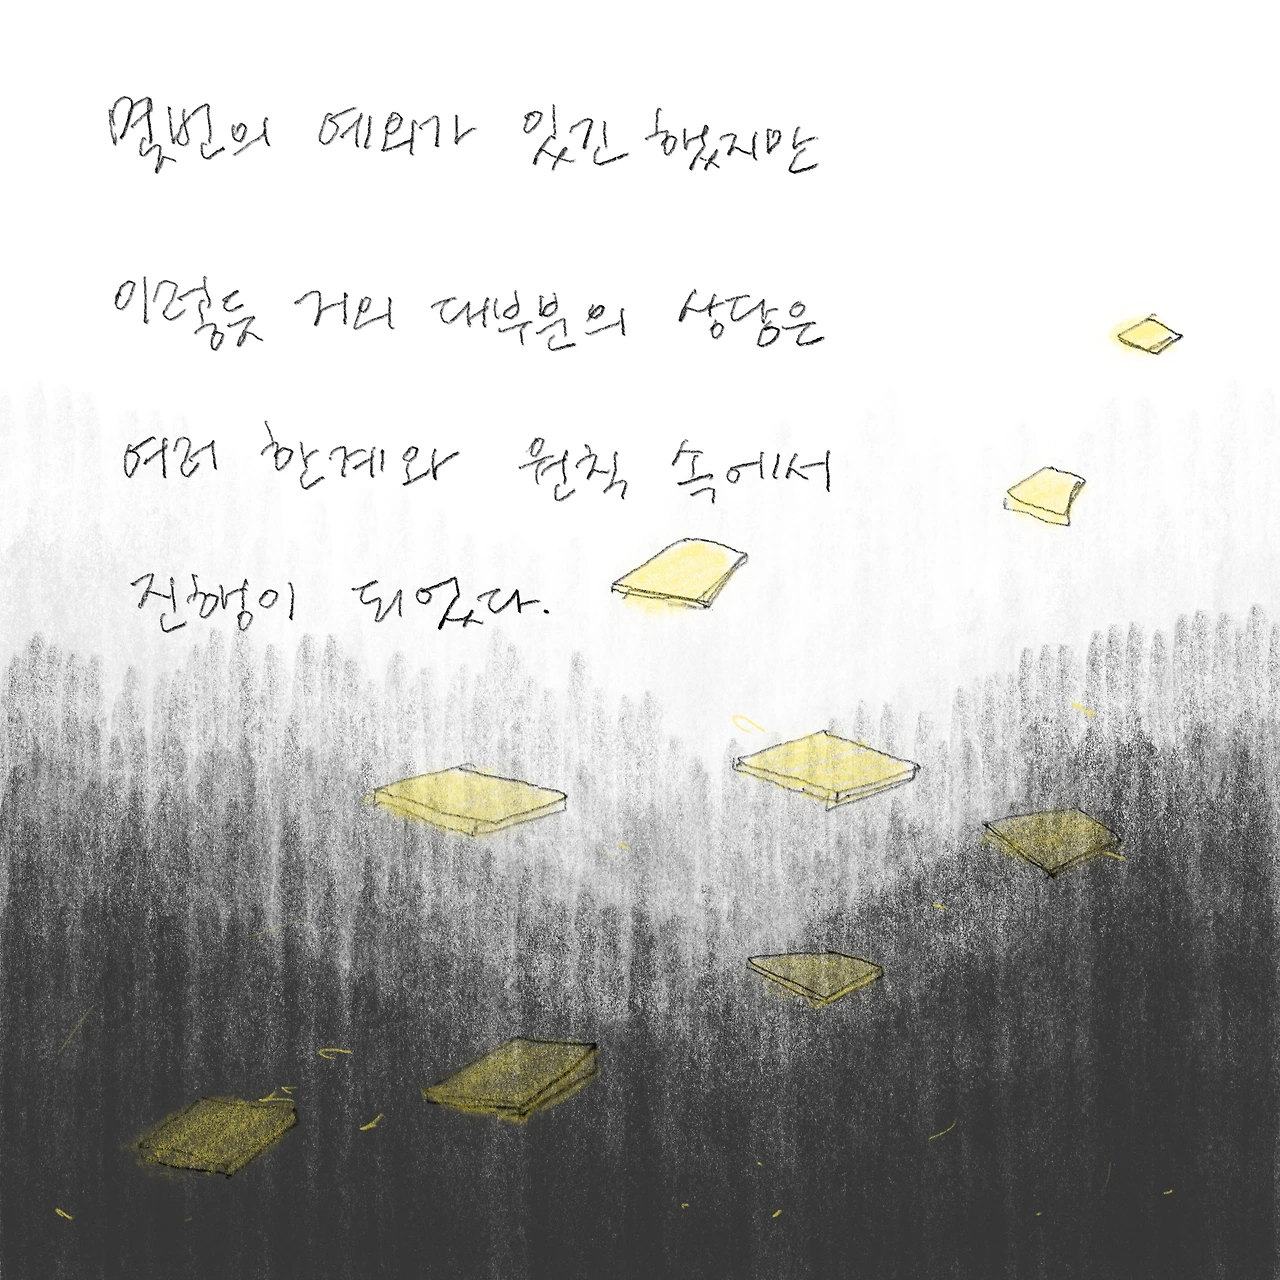 몇번의 예외가 있긴 했지만
이렇듯 거의 대부분의 상담은
여러 한계와 원칙 속에서
진행이 되었다.